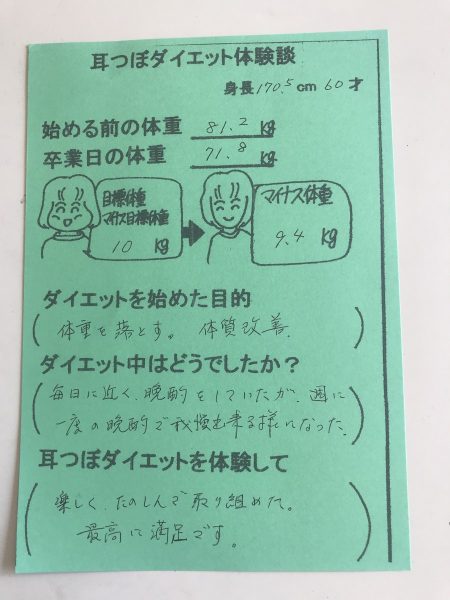 耳つぼダイエット体験談
身長170.5cm 60才
始める前の体重 81.2 kg
卒業日の体重 71.8 kg
目標体重
マイナス目標体重
10 kg
マイナス体重
9.4 kg
ダイエットを始めた目的
(体重を落とす。 体質改善.)
ダイエット中はどうでしたか?
(毎日に近く、晩酌をしていたが、週に
一度の晩酌で我慢出来る様になった.)
耳つぼダイエットを体験して
(楽しく、たのしんで取り組めた。
最高に満足です。)